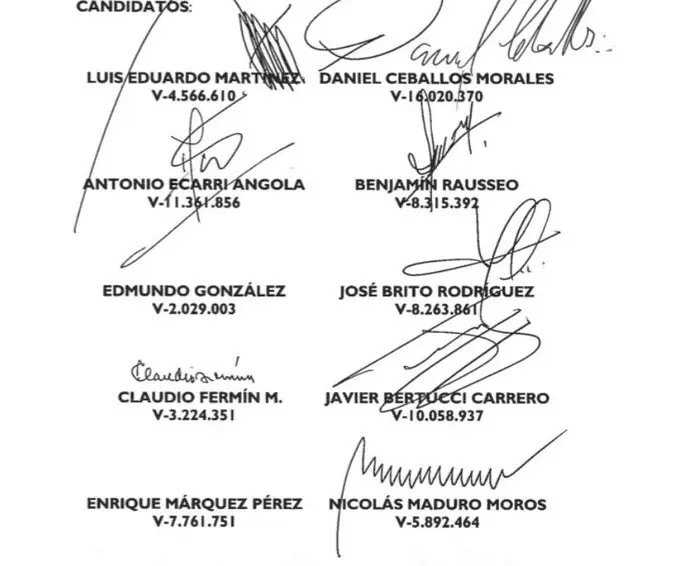 CANDIDATOS:
LUIS EDUARDO MARTÍNEZ
V-4.566.610
DANIEL CEBALLOS MORALES
V-16.020.370
Daniel Ceballos
ANTONIO ECARRI ANGOLA
V-11.361.856
BENJAMÍN RAUSSEO
V-8.315.392
EDMUNDO GONZÁLEZ
V-2.029.003
JOSÉ BRITO RODRÍGUEZ
V-8.263.861
Claudio Fermín
CLAUDIO FERMÍN M.
V-3.224.351
JAVIER BERTUCCI CARRERO
V-10.058.937
ENRIQUE MÁRQUEZ PÉREZ
V-7.761.751
NICOLÁS MADURO MOROS
V-5.892.464